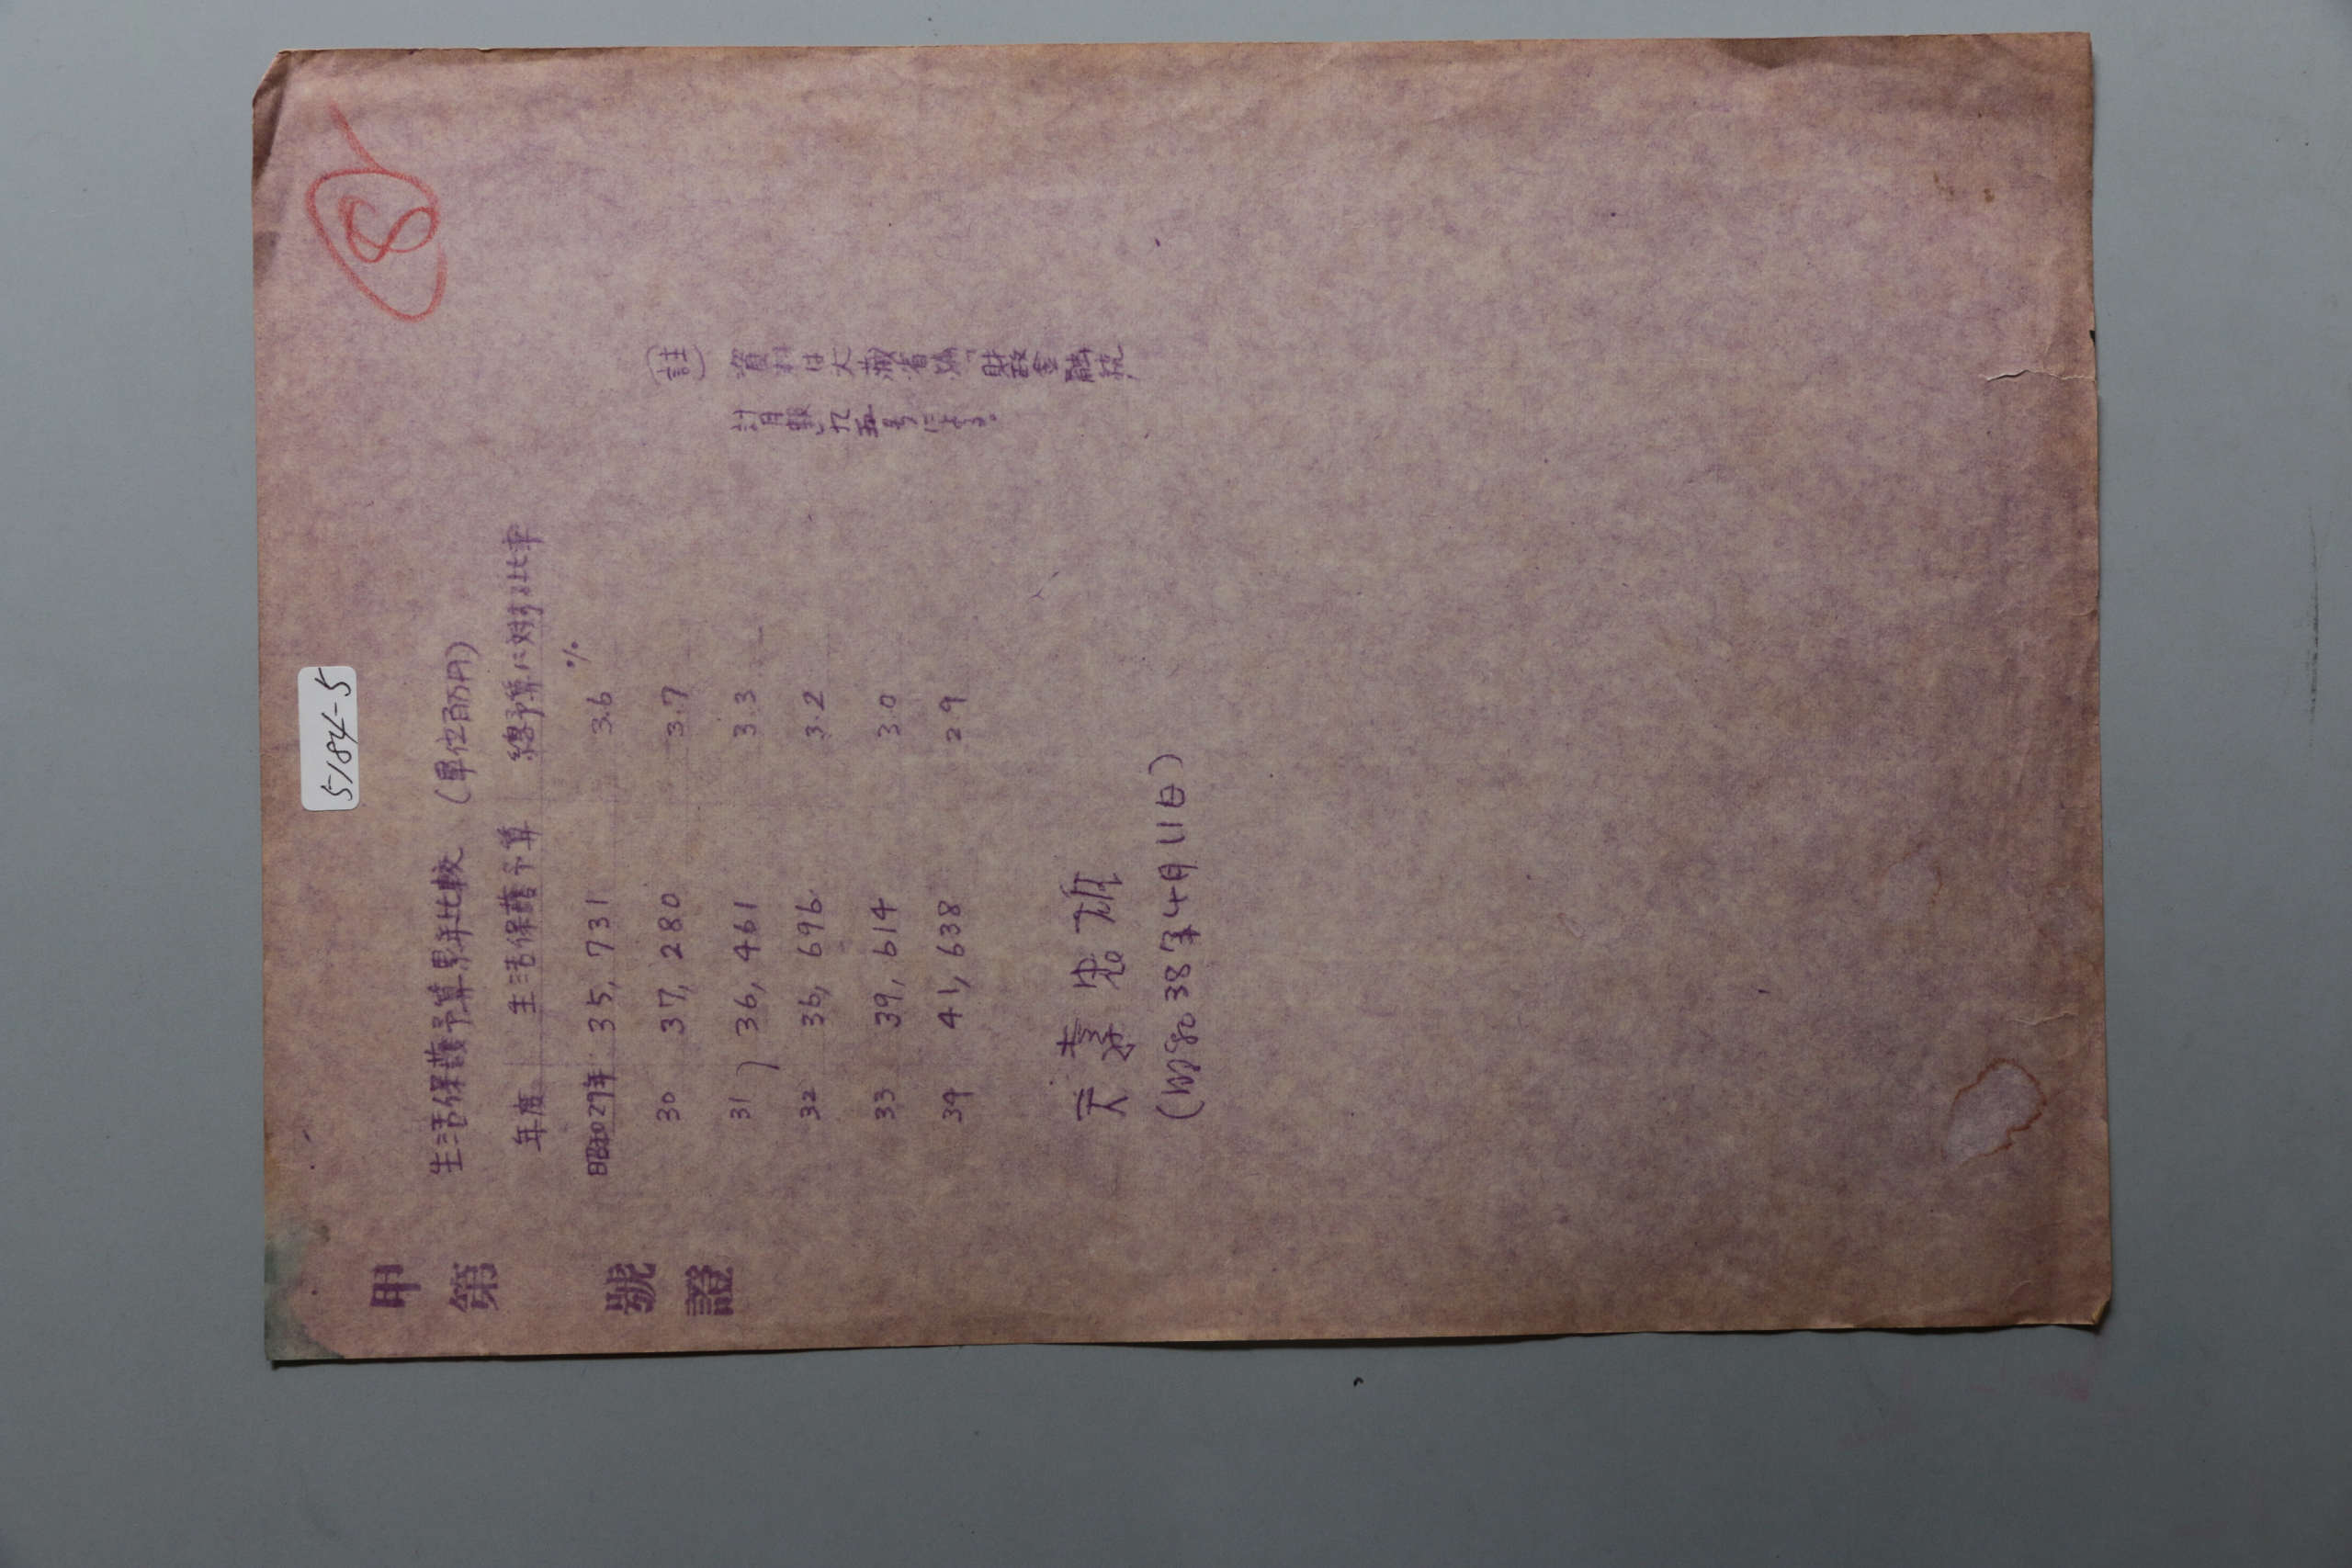 5184-5
8
甲第 號證
生活保護予算累年比較 (單位百万円)
年度 生活保護予算 總予算に対する比率
昭和29年 35,731 3.6 %
30 37,280 3.7
31 36,461 3.3
32 36,696 3.2
33 39,614 3.0
34 41,638 2.9
(註) 資料は大蔵省編「財政金融統
計月報」九五号による。
(昭和38年4月11日)